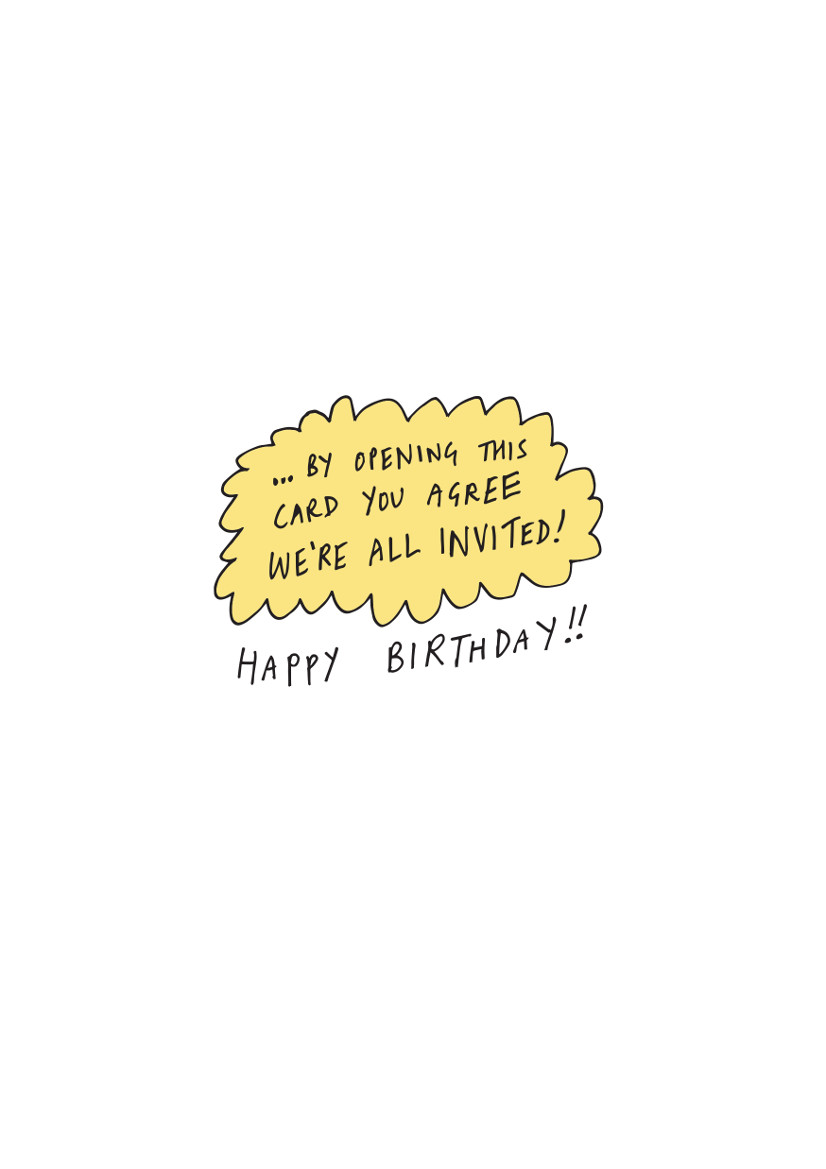 ... BY OPENING THIS
CARD YOU AGREE
WE'RE ALL INVITED!
HAPPY BIRTHDAY!!